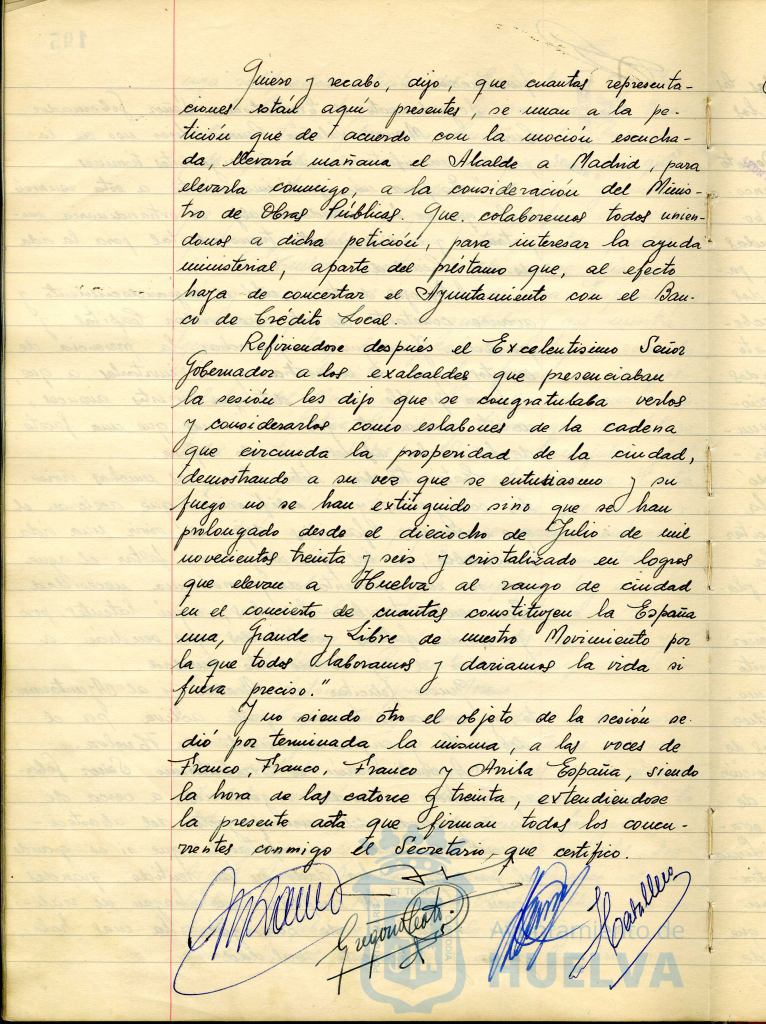 Quiero y recabo, dijo, que cuantas representa-
ciones están aquí presentes, se unan a la pe-
tición que de acuerdo con la moción escucha-
da, llevará mañana el Alcalde a Madrid, para
elevarla conmigo, a la consideración del Minis-
tro de Obras Públicas. Que colaboremos todos unien-
donos a dicha petición, para interesar la ayuda
ministerial, aparte del préstamo que, al efecto
haja de concertar el Ayuntamiento con el Ban-
co de Crédito Local.
Refiriendose después el Excelentisimo Señor
Gobernador a los exalcaldes que presenciaban
la sesión les dijo que se congratulaba verlos
y considerarlos como eslabones de la cadena
que circunda la prosperidad de la ciudad,
demostrando a su vez que se entusiasmo y su
fuego no se han extinguido sino que se han
prolongado desde el dieciocho de Julio de mil
novecientos treinta y seis y cristalizado en logros
que elevan a Huelva al rango de ciudad
en el concierto de cuantas constituyen la España
una, Grande y Libre de nuestro Movimiento por
la que todos laboramos y dariamos la vida si
fuera preciso."
Y no siendo otro el objeto de la sesión se
dió por terminada la misma, a las voces de
Franco, Franco, Franco y Arriba España, siendo
la hora de las catorce y treinta, extendiendose
la presente acta que firman todos los concu-
rrentes conmigo el Secretario, que certifico.
Ayuntamiento de
HUELVA